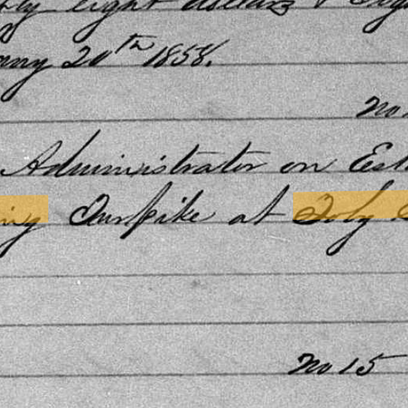 fly eight dollars &
ary 20th 1858.
No
Administrator on Est
ing Turnpike at July
No 15